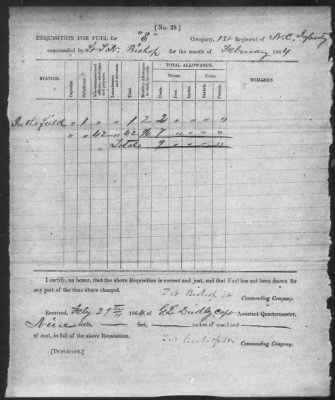 [No. 29.]
REQUISITION FOR FUEL for "E" Company, 1st Regiment of N.C. Infantry
commanded by Lt Bishop for the month of February 1864
STATION.
Captains.
TOTAL ALLOWANCE.
REMARKS.
WOOD.
COAL.
Total.
Monthly Allowance to each, in cords.
Cords.
Feet.
Inches.
In the field " 1 " " 1 2 2 " " "
" " 42 " 42 7 " " " "
Total 9 " " " "
I certify, on honor, that the above Requisition is correct and just, and that Fuel has not been drawn for
any part of the time above charged.
Bishop Lt
Commanding Company.
Received, Feby 29th 1864, of Capt Assistant Quartermaster,
Nine cords, feet, inches of wood and
of coal, in full of the above Requisition.
Bishop Lt
Commanding Company.
[DUPLICATE.]